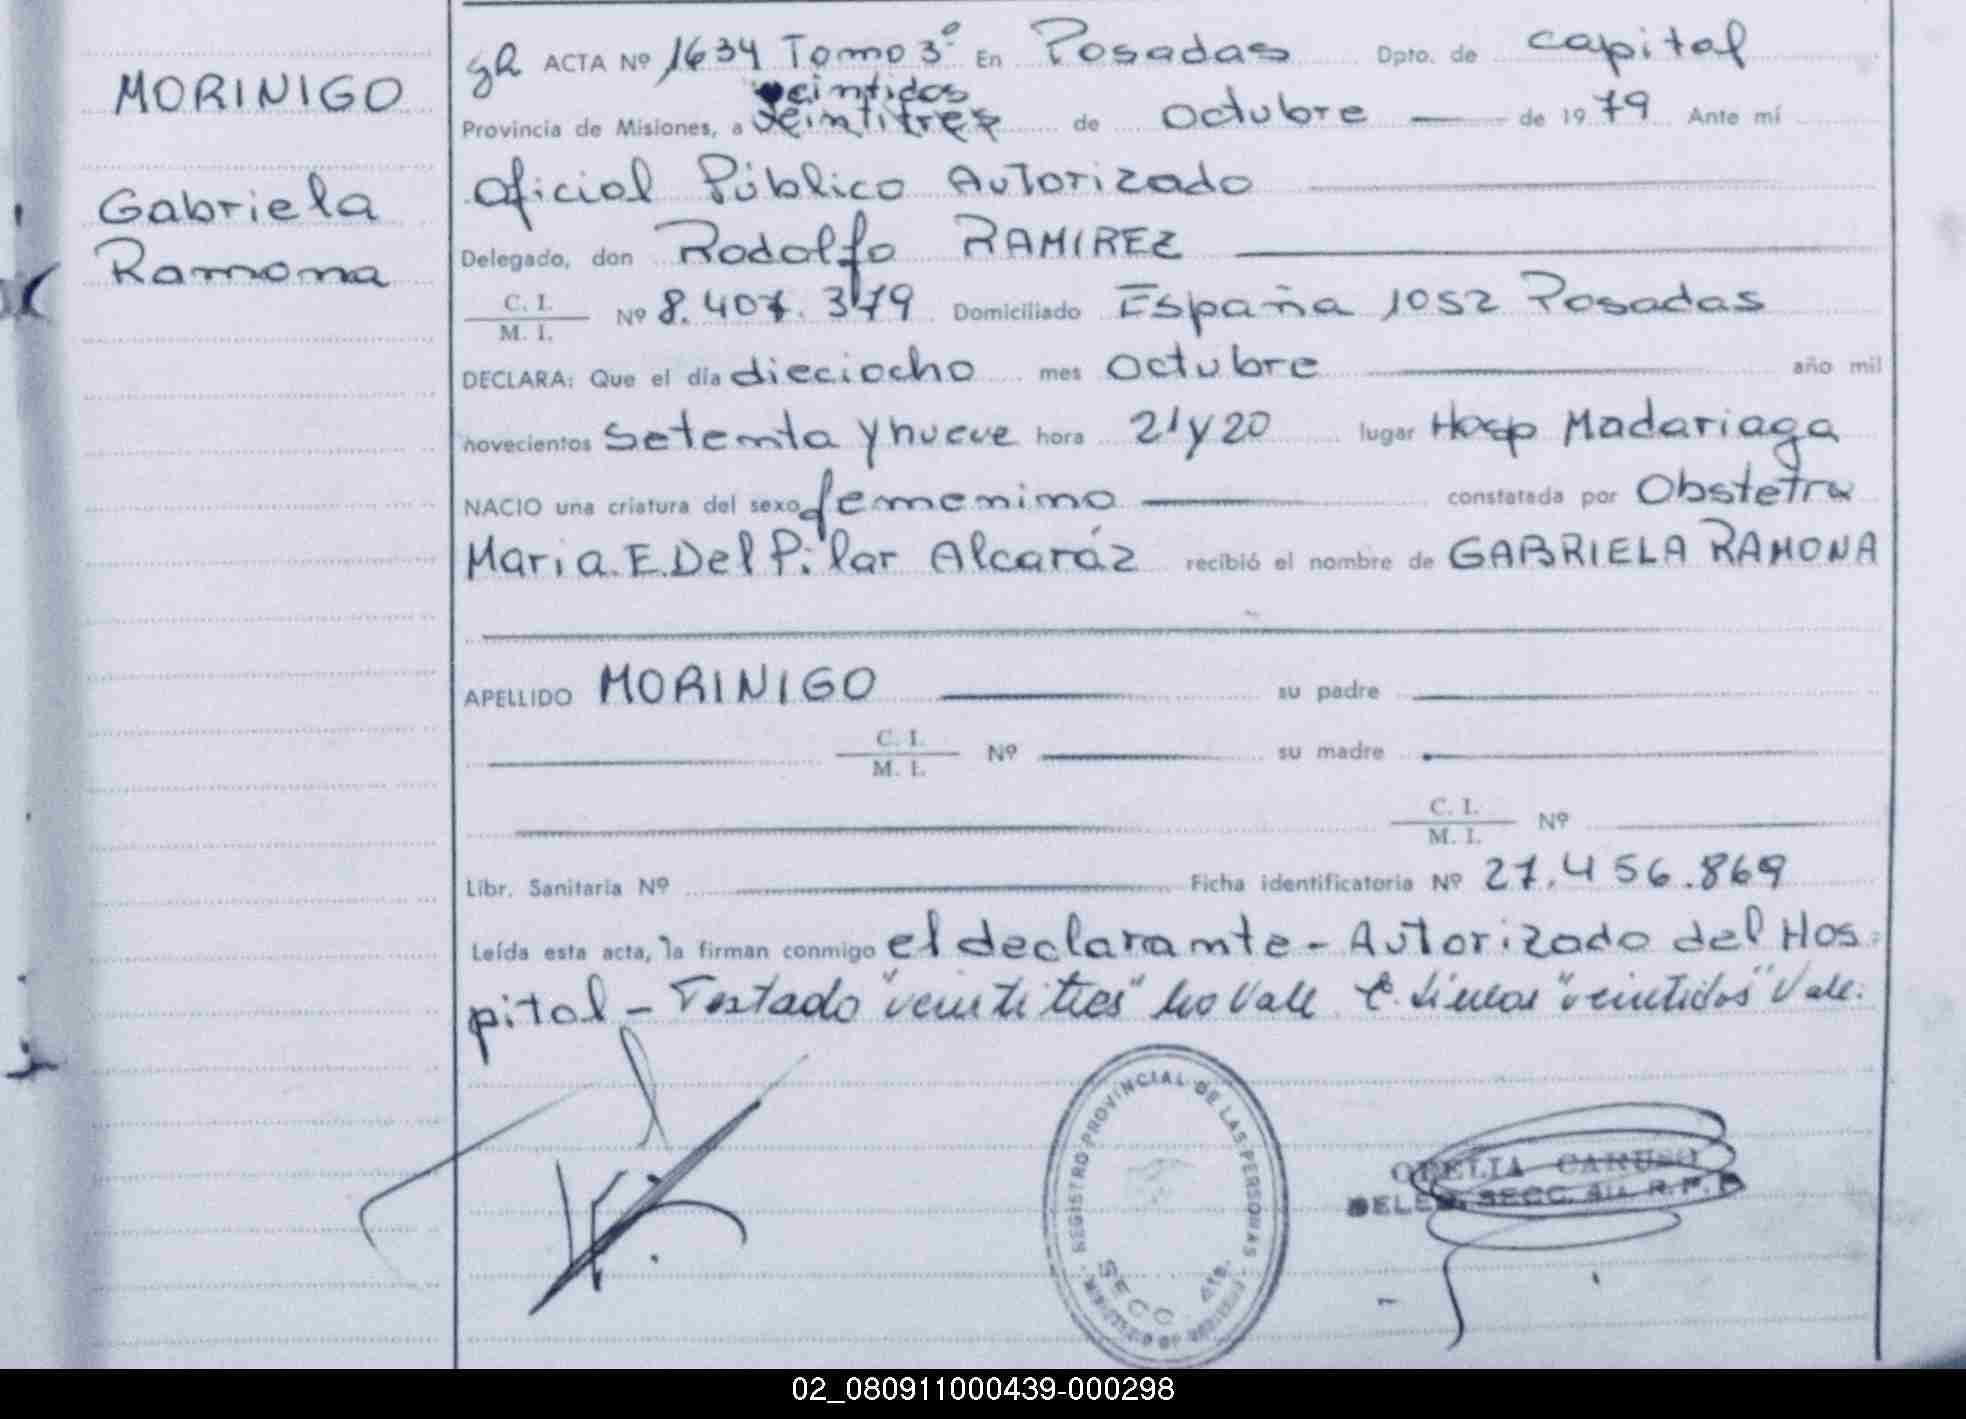 MORINIGO
Gabriela
Ramona
ACTA Nº 1634 Tomo 3º En Posadas Dpto. de capital
veintidos
Provincia de Misiones, a veintitres de octubre de 1979 Ante mí
Oficial Público Autorizado
Delegado, don Rodolfo RAMIREZ
C. I.
M. I.
Nº 8.407.379 Domiciliado España 1052 Posadas
DECLARA: Que el día dieciocho mes octubre año mil
novecientos setenta y nueve hora 21 y 20 lugar Hosp Madariaga
NACIO una criatura del sexo femenino constatada por Obstetra
Maria.E.Del Pilar Alcaráz recibió el nombre de GABRIELA RAMONA
APELLIDO MORINIGO su padre
C. I.
M. I.
Nº su madre
C. I.
M. I.
Nº
Libr. Sanitaria Nº Ficha identificatoria Nº 27.456.869
Leída esta acta, la firman conmigo el declarante - Autorizado del Hos
pital - Testado "veintitres" no Vale E. lineas "veintidos" Vale.
REGISTRO PROVINCIAL DE LAS PERSONAS
SECC 4ta.
MINISTERIO DE GOBIERNO
OFELIA CARUSO
DELEG. SECC. 4ta. R.P.P.
02_080911000439-000298